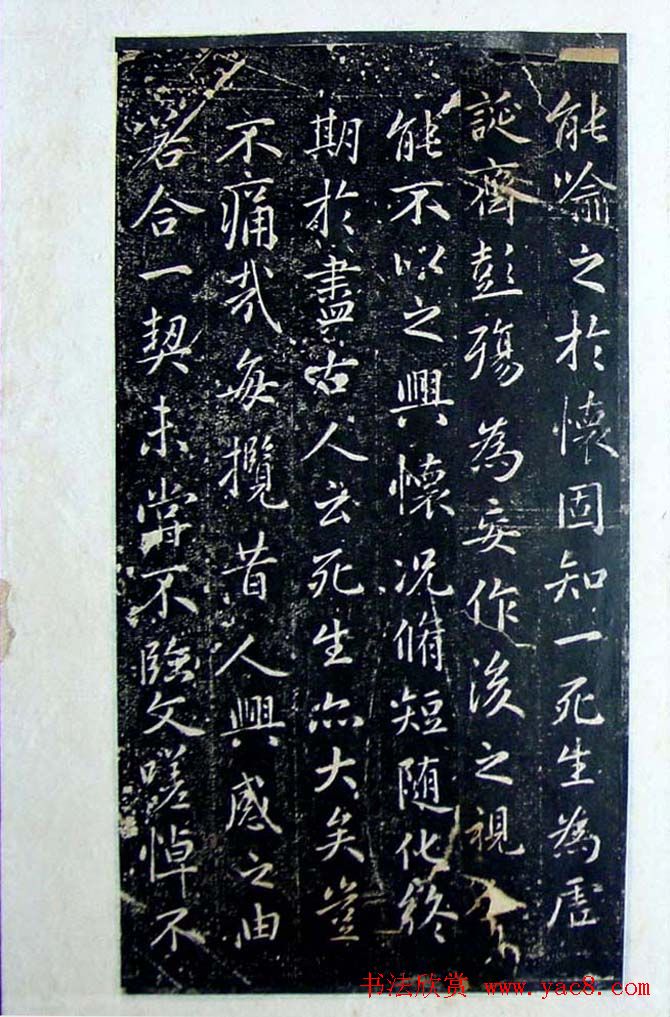 能喻之於懷固知一死生為虛
誕齊彭殤為妄作後之視
能不以之興懷况脩短随化終
期於盡古人云死生亦大矣豈
不痛哉每攬昔人興感之由
若合一契未嘗不臨文嗟悼不
书法欣赏 www.yac8.com